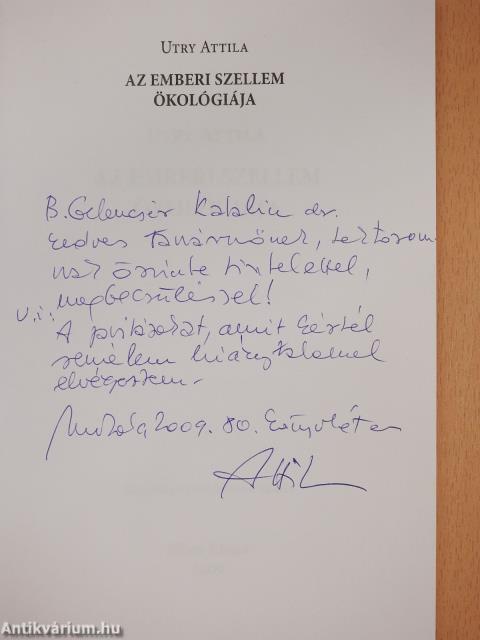 UTRY ATTILA
AZ EMBERI SZELLEM
ÖKOLÓGIÁJA
B. Gelencsér Katalin dr.
kedves Tanárnőnek, lektorom-
nak őszinte tisztelettel,
megbecsüléssel!
U.i.:
A javításokat, amit kértél
remélem hiánytalanul
elvégeztem.
2009. 80. Könyvhéten
Attila
Antikvárium.hu